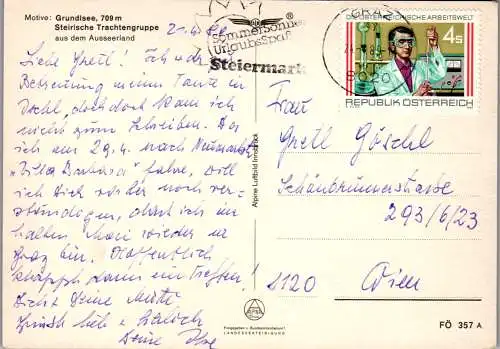 Motive: Grundlsee, 709 m
Steirische Trachtengruppe
aus dem Ausseerland
Sommersonne
Urlaubsspaß
Steiermark
GRAZ
8020
DIE ÖSTERREICHISCHE ARBEITSWELT
4 S
REPUBLIK ÖSTERREICH
Liebe Gretl! Ich war
Betreuung meiner Tante in
Ischl, doch doch kam ich
nicht zum Schreiben. Da
ich am 29.4. nach Neumarkt
"Villa Barbara" fahre, will
ich Dich vorher noch ver-
ständigen, damit ich im
halben Mai wieder in
Graz bin. Hoffentlich
klappt dann ein Treffen!
Liebe
Deine
Frau
Gretl Göschl
Schönbrunnerstrasse
293/6/23
1120 Wien
Alpine Luftbild Innsbruck
Freigegeben v. Bundesministerium f.
LANDESVERTEIDIGUNG
FÖ 357 A